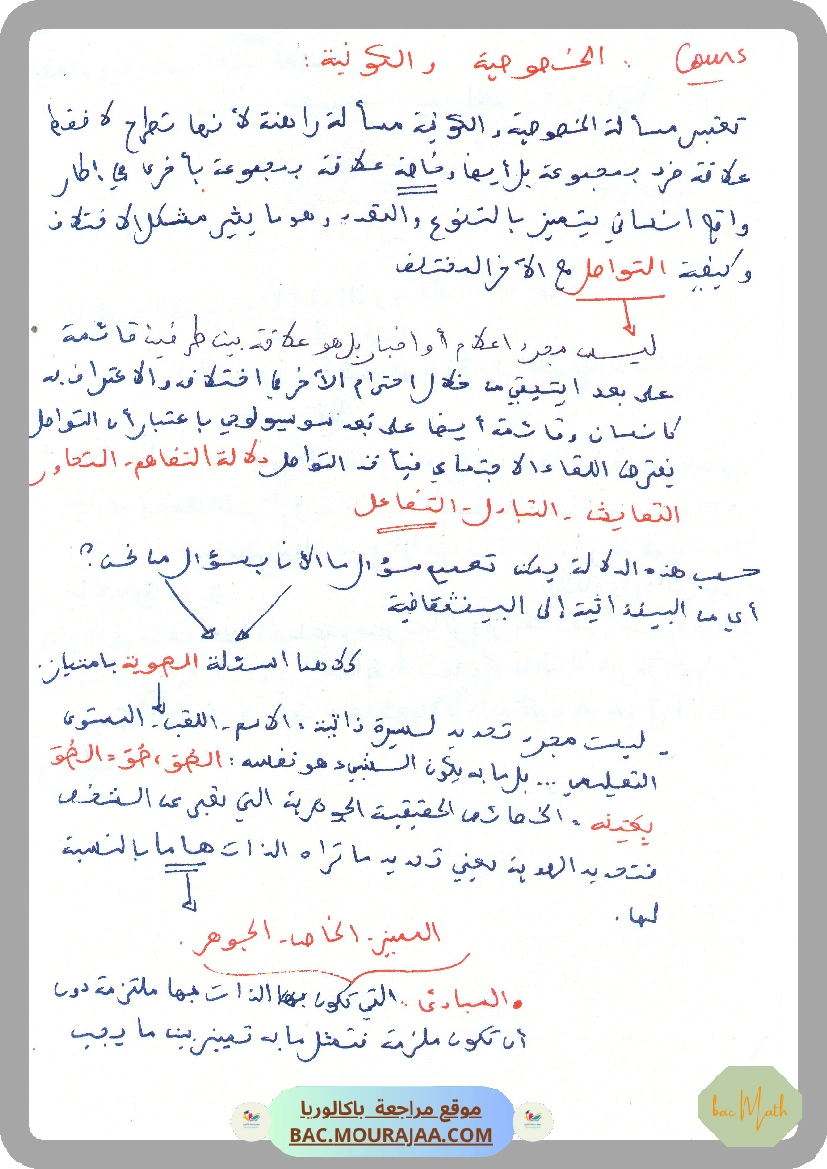 Cours . الخصوصية والكونية :
تعتبر مسألة الخصوصية والكونية مسألة راهنة لأنها تطرح لا فقط
علاقة فرد بمجموعة بل أيضا وخاصة علاقة مجموعة بأخرى في إطار
واقع انساني يتميز بالتنوع والتعدد وهو ما يثير مشكل الاختلاف
وكيفية التواصل مع الآخر المختلف
ليست مجرد اعلام أو اخبار بل هو علاقة بين طرفين قائمة
على بعد ايتيقي من خلال احترام الآخر في اختلافه والاعتراف به
كانسان وقائمة أيضا على بعد سوسيولوجي باعتبار أن التواصل
يفترض اللقاء الاجتماعي فيأخذ التواصل دلالة التفاهم - التحاور
التعايش - التبادل - التفاعل
حسب هذه الدلالة يمكن تعميم سؤال ما الأنا بسؤال ما نحن ؟
أي من البينذاتية إلى البينثقافية
كلاهما اسئلة الهوية بامتياز.
- ليست مجرد تحديد لسيرة ذاتية : الاسم - اللقب - المستوى
التعليمي ... بل ما به يكون الشيء هو نفسه : الهُوَ ، هُوَ = الهُوَ
بعينه = الخصائص الحقيقية الجوهرية التي تعبر عن الشخص
فتحديد الهوية يعني تحديد ما تراه الذات هاما بالنسبة
لها .
المميز - الخاص - الجوهر .
• المبادئ : التي تكون الذات بها ملتزمة دون
أن تكون ملزمة فتمثل ما به تميز بين ما يجب
موقع مراجعة باكالوريا
BAC.MOURAJAA.COM
bac Math